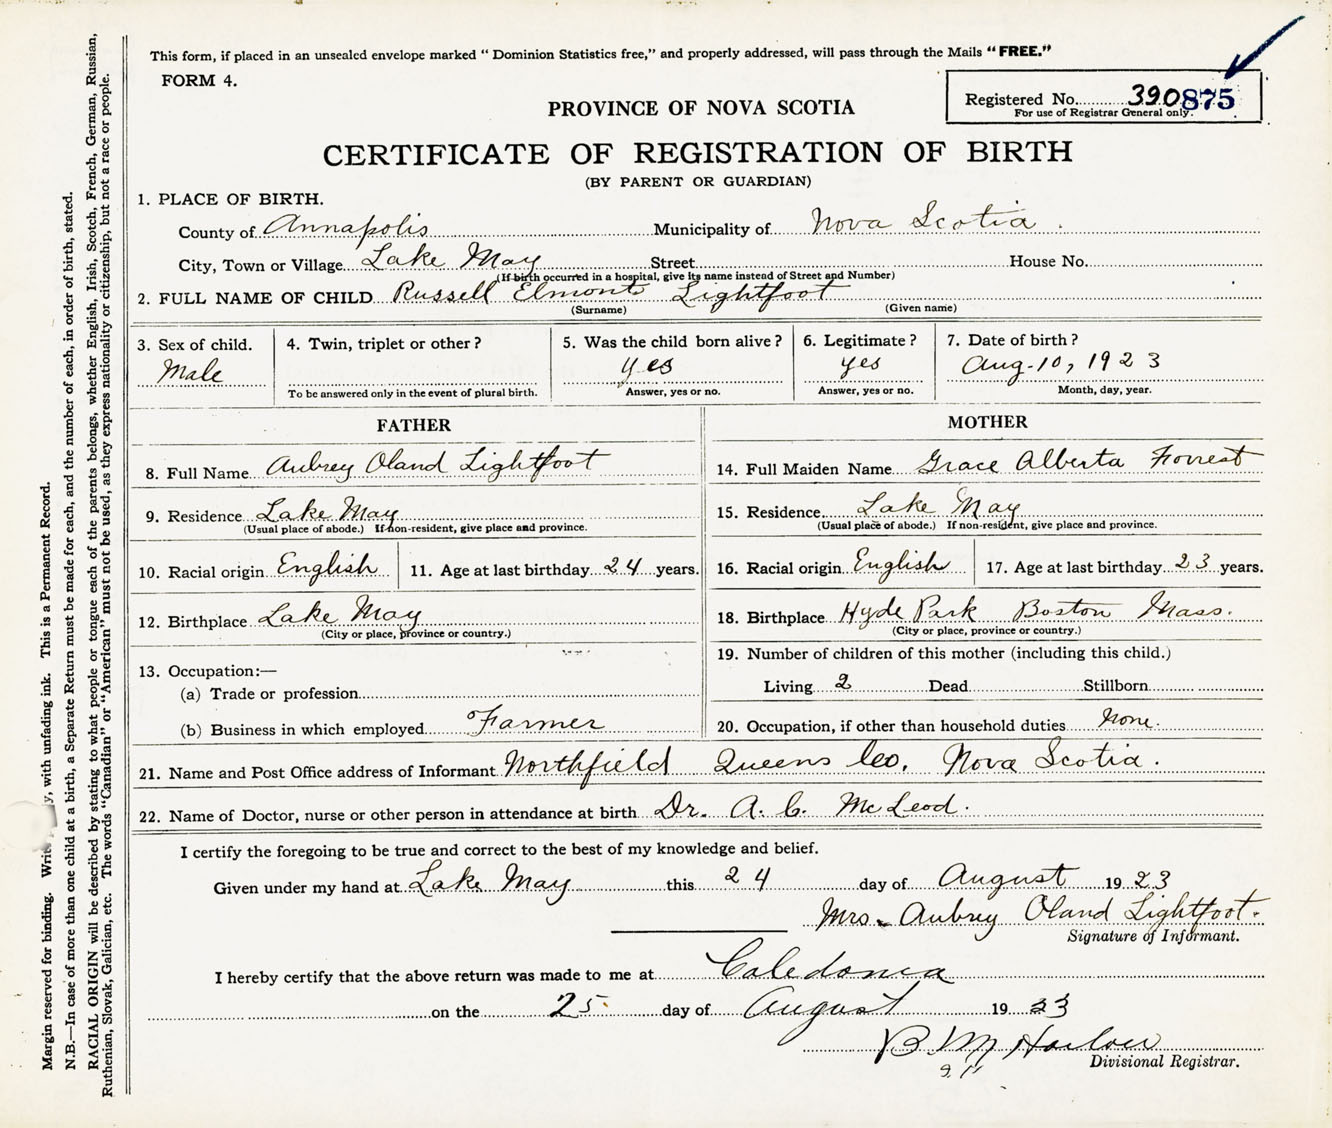 This form, if placed in an unsealed envelope marked "Dominion Statistics free," and properly addressed, will pass through the Mails "FREE."
FORM 4.
Registered No. 390875
For use of Registrar General only.
PROVINCE OF NOVA SCOTIA
CERTIFICATE OF REGISTRATION OF BIRTH
(BY PARENT OR GUARDIAN)
1. PLACE OF BIRTH.
County of Annapolis Municipality of Nova Scotia.
City, Town or Village Lake May Street House No.
(If birth occurred in a hospital, give its name instead of Street and Number)
2. FULL NAME OF CHILD Russell Elmont Lightfoot
(Surname) (Given name)
3. Sex of child. 4. Twin, triplet or other? 5. Was the child born alive? 6. Legitimate? 7. Date of birth?
Male yes yes Aug. 10, 1923
To be answered only in the event of plural birth. Answer, yes or no. Answer, yes or no. Month, day, year.
FATHER
8. Full Name Aubrey Oland Lightfoot
9. Residence Lake May
(Usual place of abode.) If non-resident, give place and province.
10. Racial origin English 11. Age at last birthday 24 years.
12. Birthplace Lake May
(City or place, province or country.)
13. Occupation:—
(a) Trade or profession
(b) Business in which employed Farmer
MOTHER
14. Full Maiden Name Grace Alberta Forrest
15. Residence Lake May
(Usual place of abode.) If non-resident, give place and province.
16. Racial origin English 17. Age at last birthday 23 years.
18. Birthplace Hyde Park Boston Mass.
(City or place, province or country.)
19. Number of children of this mother (including this child.)
Living 2 Dead Stillborn
20. Occupation, if other than household duties None.
21. Name and Post Office address of Informant Northfield Queens Co. Nova Scotia.
22. Name of Doctor, nurse or other person in attendance at birth Dr. A. C. McLeod.
I certify the foregoing to be true and correct to the best of my knowledge and belief.
Given under my hand at Lake May this 24 day of August 1923
Mrs. Aubrey Oland Lightfoot.
Signature of Informant.
I hereby certify that the above return was made to me at Caledonia
on the 25 day of August 1923
B M Harlow
Divisional Registrar.
Margin reserved for binding. Write with unfading ink. This is a Permanent Record.
N.B.—In case of more than one child at a birth, a Separate Return must be made for each, and the number of each, in order of birth, stated.
RACIAL ORIGIN will be described by stating to what people or tongue each of the parents belongs, whether English, Irish, Scotch, French, German, Russian,
Ruthenian, Slovak, Galician, etc. The words "Canadian" or "American" must not be used, as they express nationality or citizenship, but not a race or people.